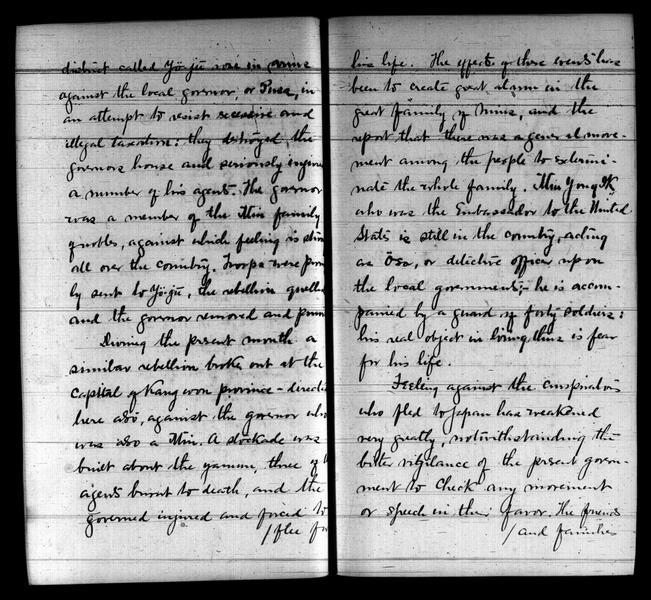 district called Yö-jü rose in arms
against the local governor, or Pusa, in
an attempt to resist excessive and
illegal taxation: they destroyed the
governors house and seriously injure
a number of his agents. The governor
was a member of the Min family
of nobles, against which feeling is
all over the country. Troops were
ly sent to Yö-jü, the rebellion quelle
and the governor removed and
During the present month a
similar rebellion broke out at the
capital of Kang won province - directe
here also, against the governor who
was also a Min. A stockade was
built about the yamun, three of
agents burnt to death, and the
governed injured and forced to
/flee
his life. The effects of these events has
been to create great alarm in the
great family of Mins, and the
report that there was a general move-
ment among the people to extermi-
nate the whole family. Min Yong Ik
who was the Embassador to the United
States is still in the country, acting
as Ösa, or detective officer upon
the local governments; he is accom-
panied by a guard of forty soldiers:
his real object in living thus is fear
for his life.
Feeling against the conspirators
who fled to Japan has weakened
very greatly, notwithstanding the
bitter vigilance of the present govern-
ment to check any movement
or speech in their favor. The friends
/and families